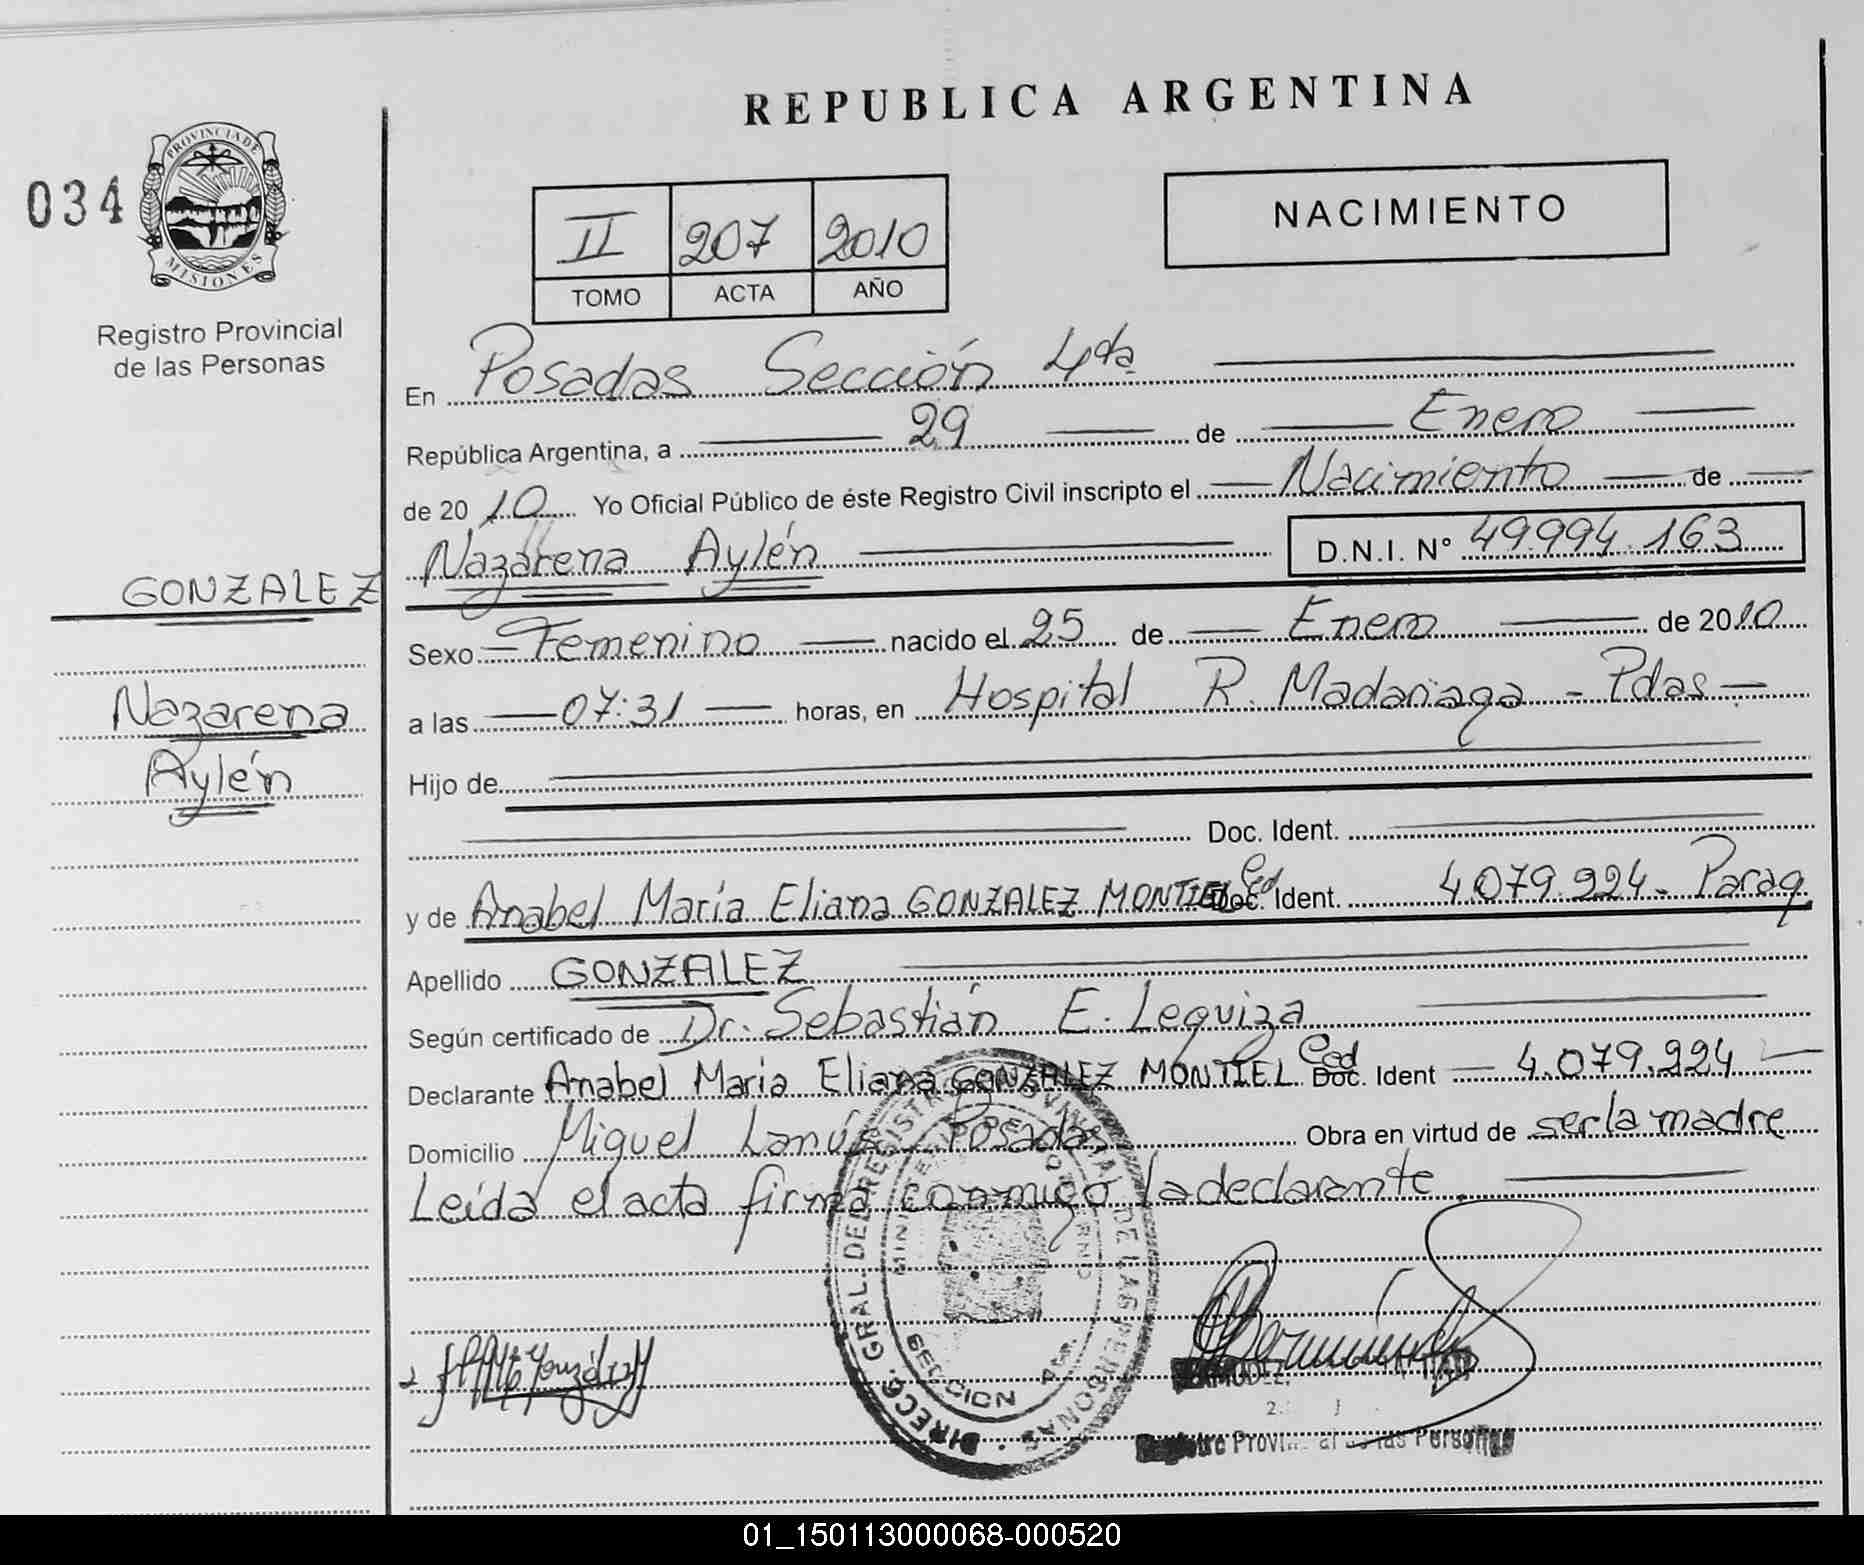 REPUBLICA ARGENTINA
034
PROVINCIA DE MISIONES
Registro Provincial
de las Personas
II 207 2010
TOMO ACTA AÑO
NACIMIENTO
En Posadas Sección 4da
República Argentina, a 29 de Enero
de 2010 Yo Oficial Público de éste Registro Civil inscripto el Nacimiento de
Nazarena Aylén D.N.I. N° 49.994.163
GONZALEZ
Nazarena
Aylén
Sexo Femenino nacido el 25 de Enero de 2010
a las 07:31 horas, en Hospital R. Madariaga - Pdas -
Hijo de
Doc. Ident.
y de Anabel María Eliana GONZALEZ MONTIEL Ced Doc. Ident. 4.079.224 - Parag.
Apellido GONZALEZ
Según certificado de Dr. Sebastián E. Leguiza
Declarante Anabel María Eliana GONZALEZ MONTIEL Ced Doc. Ident 4.079.224
Domicilio Miguel Lanús Posadas Obra en virtud de ser la madre
Leída el acta firma conmigo la declarante.
DIRECC. GRAL. DEL REGISTRO PROVINCIAL DE LAS PERSONAS
SECCION
Registro Provincial de las Personas
01_150113000068-000520